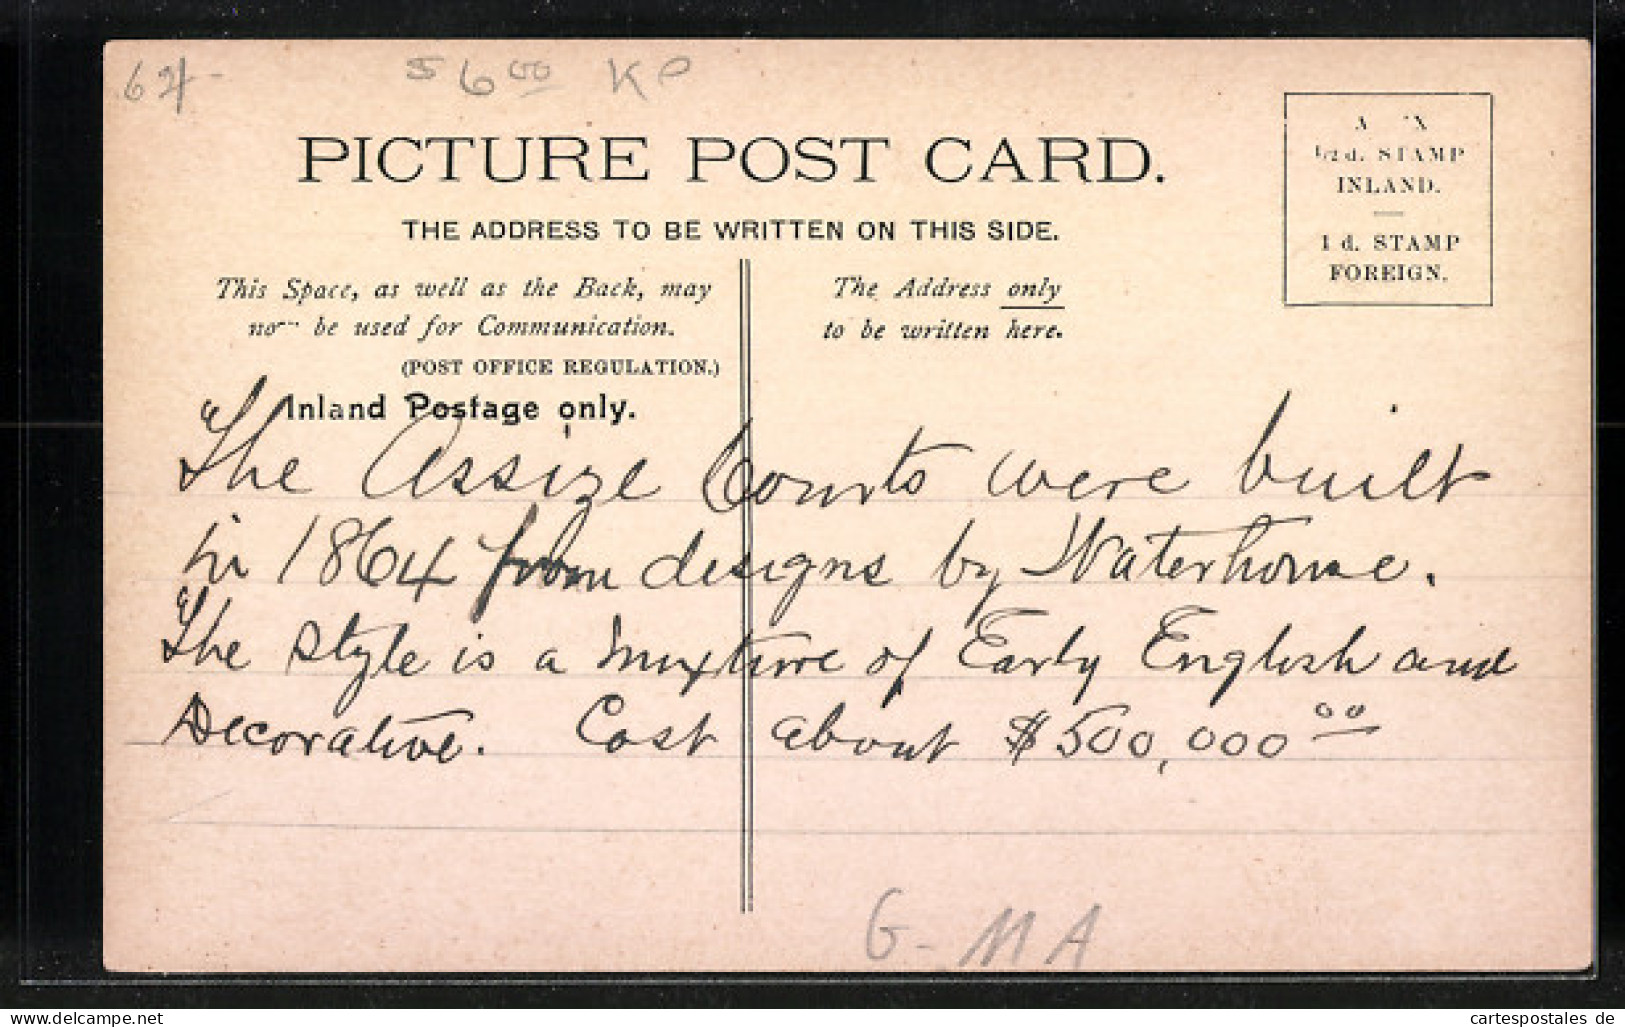 64-
5600 KP
PICTURE POST CARD.
THE ADDRESS TO BE WRITTEN ON THIS SIDE.
½d. STAMP
INLAND.
1d. STAMP
FOREIGN.
This Space, as well as the Back, may
be used for Communication.
(POST OFFICE REGULATION.)
Inland Postage only.
The Address only
to be written here.
The Assize Courts were built
in 1864 from designs by Waterhouse.
The style is a mixture of Early English and
Decorative. Cost about $500,000 00
G-MA
www.cartespostales.de
cartespostales de